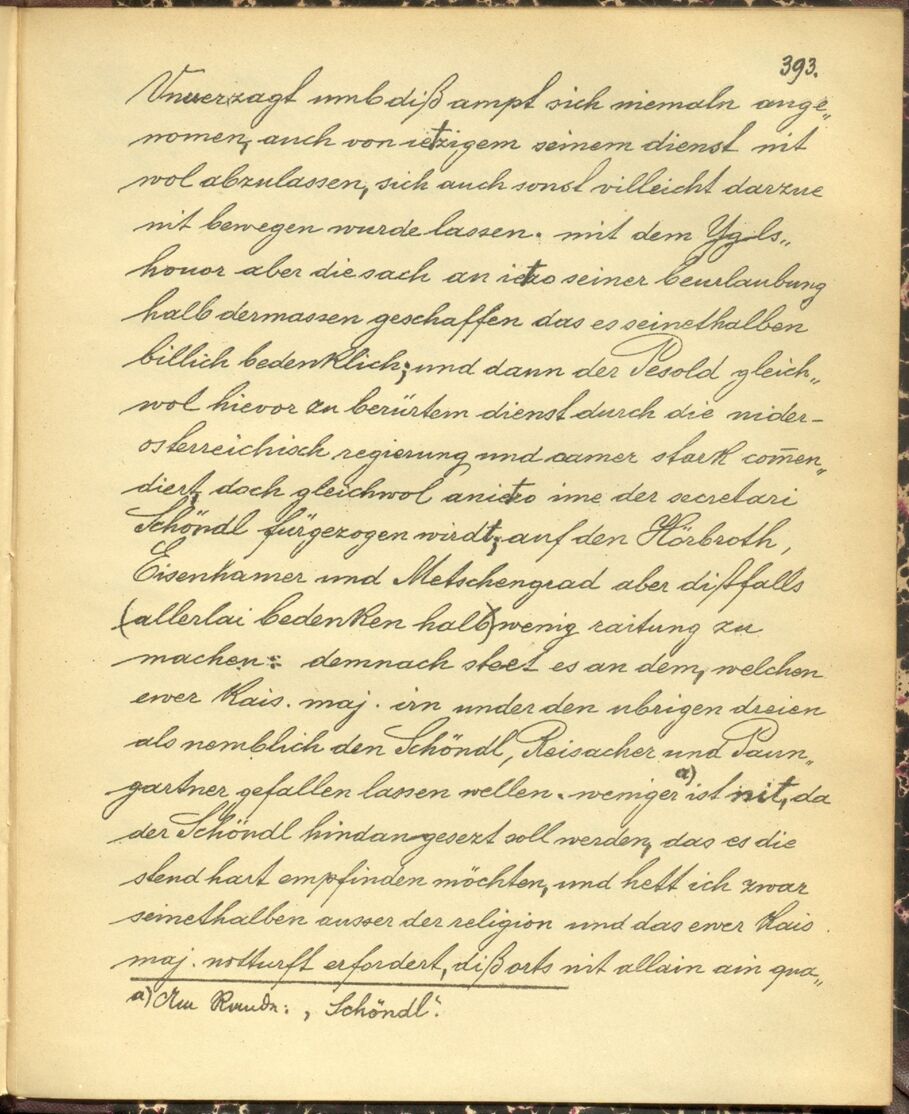 393.
Unverzagt umb diß ampt sich niemaln ange„
nomen, auch von ietzigem seinem dienst nit
wol abzulassen, sich auch sonst villeicht darzue
nit bewegen wurde lassen. mit dem Ygls„
houor aber die sach an ietzo seiner beurlaubung
halb dermassen geschaffen das es seinethalben
billich bedenklich; und dann der Pesold gleich„
wol hievor zu berürtem dienst durch die nider-
österreichisch regierung und camer stark com̄en„
diert, doch gleichwol anietzo ime der secretari
Schöndl fürgezogen wirdt; auf den Hörbroth,
Eisenhamer und Metschengrad aber dißfalls
(allerlai bedenken halb) wenig raitung zu
machen: demnach steet es an dem, welchen
ewer Kais. maj. irn under den ubrigen dreien
als nemblich den Schöndl, Reisacher und Paun„
gartner gefallen lassen wellen. weniger a) ist nit, da
der Schöndl hindangesezt soll werden, das es die
stend hart empfinden möchten, und hett ich zwar
seinethalben ausser der religion und das ewer Kais.
maj. notturft erfordert, diß orts nit allain ain qua„
a) Am Rande: „Schöndl“.